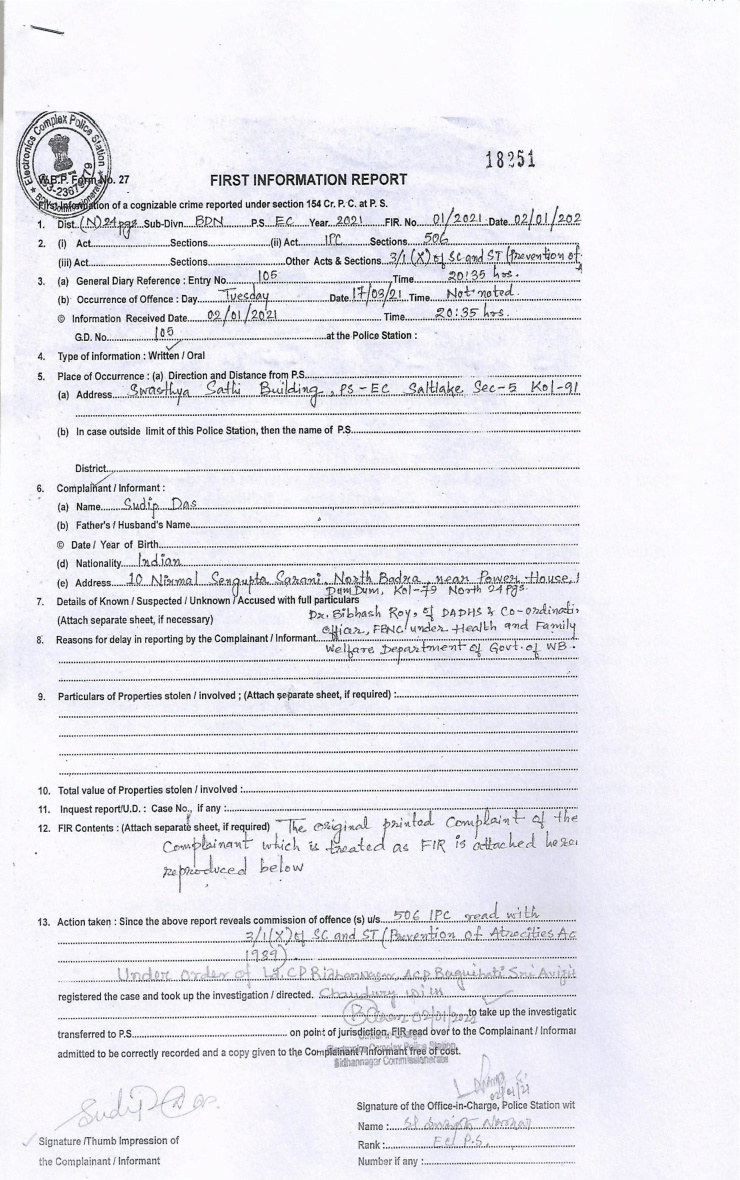 Electronics Complex Police Station
18251
W.B.P. Form No. 27
FIRST INFORMATION REPORT
First Information of a cognizable crime reported under section 154 Cr. P. C. at P. S.
1. Dist. (N) 24 pgs Sub-Divn. BDN P.S. EC Year 2021 FIR. No. 01/2021 Date 02/01/202
2. (i) Act Sections (ii) Act IPC Sections 506
(iii) Act Sections Other Acts & Sections 3/1(X) of SC and ST (Prevention of
3. (a) General Diary Reference : Entry No. 105 Time 20:35 hrs.
(b) Occurrence of Offence : Day Tuesday Date 17/03/21 Time Not noted.
© Information Received Date 02/01/2021 Time 20:35 hrs.
G.D. No. 105 at the Police Station :
4. Type of information : Written / Oral
5. Place of Occurrence : (a) Direction and Distance from P.S.
(a) Address Swasthya Sathi Building, PS-EC Saltlake Sec-5 Kol-91
(b) In case outside limit of this Police Station, then the name of P.S.
District
6. Complainant / Informant :
(a) Name Sudip Das
(b) Father's / Husband's Name
© Date / Year of Birth
(d) Nationality Indian
(e) Address 10 Nirmal Sengupta Sarani, North Badra, near Power House,
DumDum, Kol-79 North 24 Pgs.
7. Details of Known / Suspected / Unknown / Accused with full particulars
(Attach separate sheet, if necessary) Dr. Bibhash Roy, of DADHS & Co-ordinatin
officer, FBNC under Health and Family
8. Reasons for delay in reporting by the Complainant / Informant
Welfare Department of Govt. of WB.
9. Particulars of Properties stolen / involved ; (Attach separate sheet, if required) :
10. Total value of Properties stolen / involved :
11. Inquest report/U.D. : Case No., if any :
12. FIR Contents : (Attach separate sheet, if required) The original printed Complaint of the
Complainant which is treated as FIR is attached
reproduced below
13. Action taken : Since the above report reveals commission of offence (s) u/s. 506 IPC read with
3/1(X) of SC and ST (Prevention of Atrocities Ac
1989)
Under order of
registered the case and took up the investigation / directed.
02/01/2021 to take up the investigatic
transferred to P.S. on point of jurisdiction, FIR read over to the Complainant / Informar
admitted to be correctly recorded and a copy given to the Complainant / Informant free of cost.
Electronics Complex Police Station
Bidhannagar Commissionerate
Sudip Das.
02/01/21
Signature of the Office-in-Charge, Police Station wit
Name :
Signature / Thumb Impression of
Rank : EC P.S.
the Complainant / Informant
Number if any :